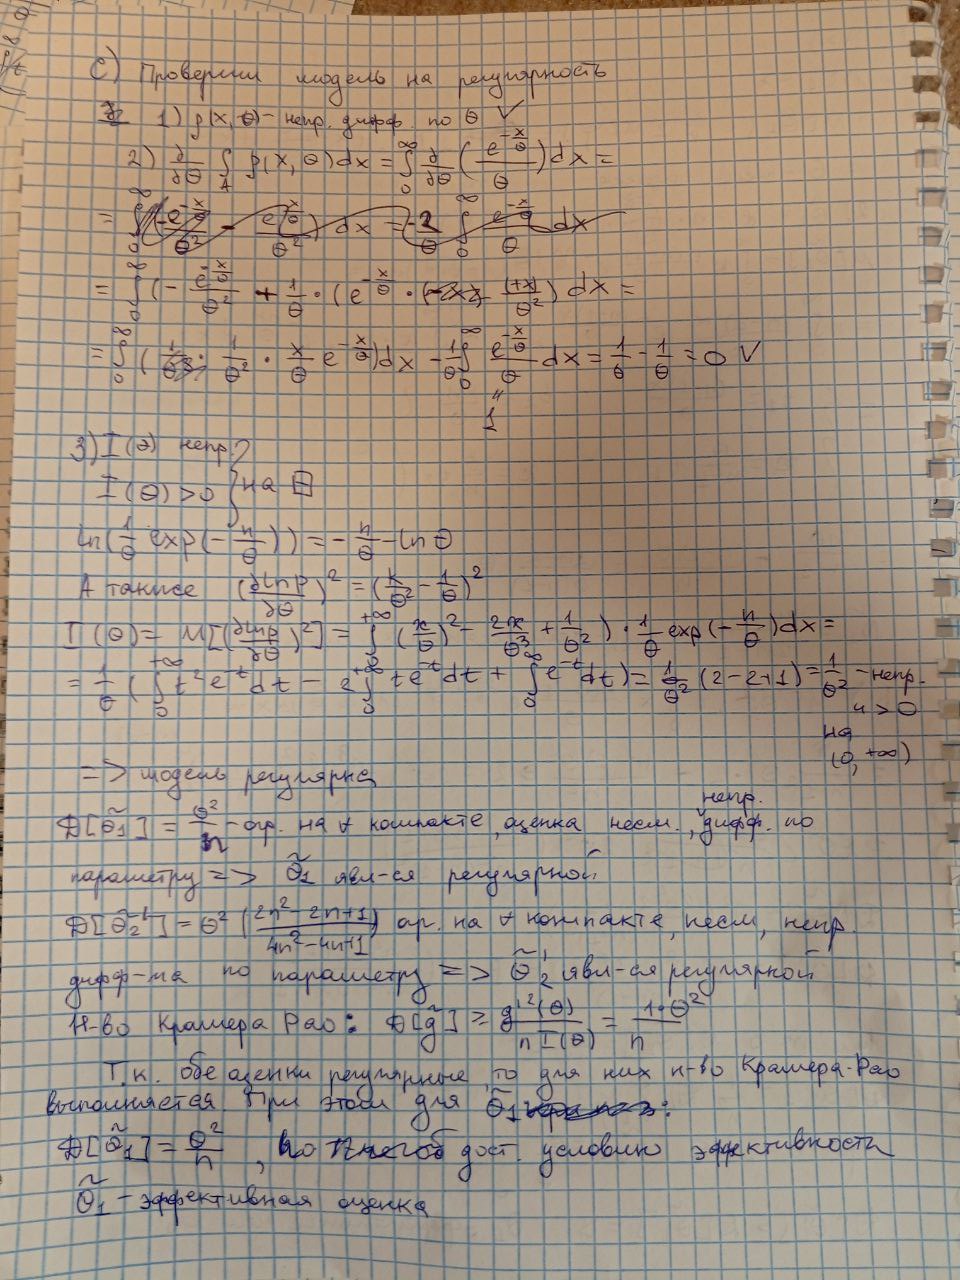 c) Проверим модель на регулярность
1) p(x,θ) - непр. дифф. по θ ✓
2) ∂/∂θ ∫_A p(x,θ)dx = ∫_0^∞ ∂/∂θ (e^{-x/θ}/θ)dx =
= ∫_0^∞ (-e^{-x/θ}/θ² + 1/θ · (e^{-x/θ} · (+x)/θ²) dx =
= ∫_0^∞ (1/θ² · x/θ e^{-x/θ})dx - 1/θ ∫_0^∞ e^{-x/θ}/θ dx = 1/θ - 1/θ = 0 ✓
" 1
3) I(θ) непр.
I(θ) > 0 } на Θ
ln(1/θ exp(-x/θ)) = -x/θ - ln θ
А также (∂lnp/∂θ)² = (x/θ² - 1/θ)²
I(θ) = M[(∂lnp/∂θ)²] = ∫_0^{+∞} (x/θ)² - 2x/θ³ + 1/θ²) · 1/θ exp(-x/θ)dx =
= 1/θ (∫_0^{+∞} t²e^{-t}dt - 2∫_0^{+∞} te^{-t}dt + ∫_0^∞ e^{-t}dt) = 1/θ² (2-2+1) = 1/θ² - непр.
и > 0
на
(0, +∞)
=> модель регулярна
D[θ̃₁] = θ²/n - огр. на ∀ компакте, оценка несм., непр. дифф. по
параметру => θ̃₁ явл-ся регулярной
D[θ̃₂'] = θ² (2n²-2n+1)/(4n²-4n+1) ор. на ∀ компакте, несм, непр.
дифф-ма по параметру => θ̃₂' явл-ся регулярной
Н-во Крамера Рао: D[g̃] ≥ g'²(θ)/(n I(θ)) = 1·θ²/n
Т.к. обе оценки регулярные, то для них н-во Крамера-Рао
выполняется. При этом для θ̃₁:
D[θ̃₁] = θ²/n, по дост. условию эффективности
θ̃₁ - эффективная оценка